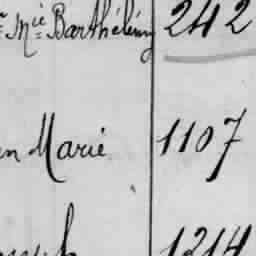 Mie Barthélémy 242
en Marie 1107
1214